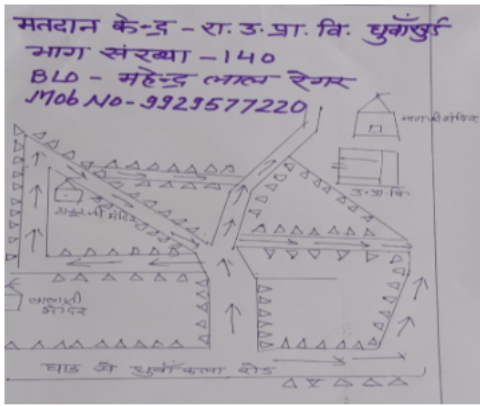 मतदान केन्द्र - रा. उ. प्रा. वि. धुवाँखुर्द
भाग संख्या - 140
BLO - महेन्द्र लाल रेगर
Mob No - 9929577220
उ. प्रा. वि.
ठाकुर जी मंदिर
घाड से धुवाँ कला रोड